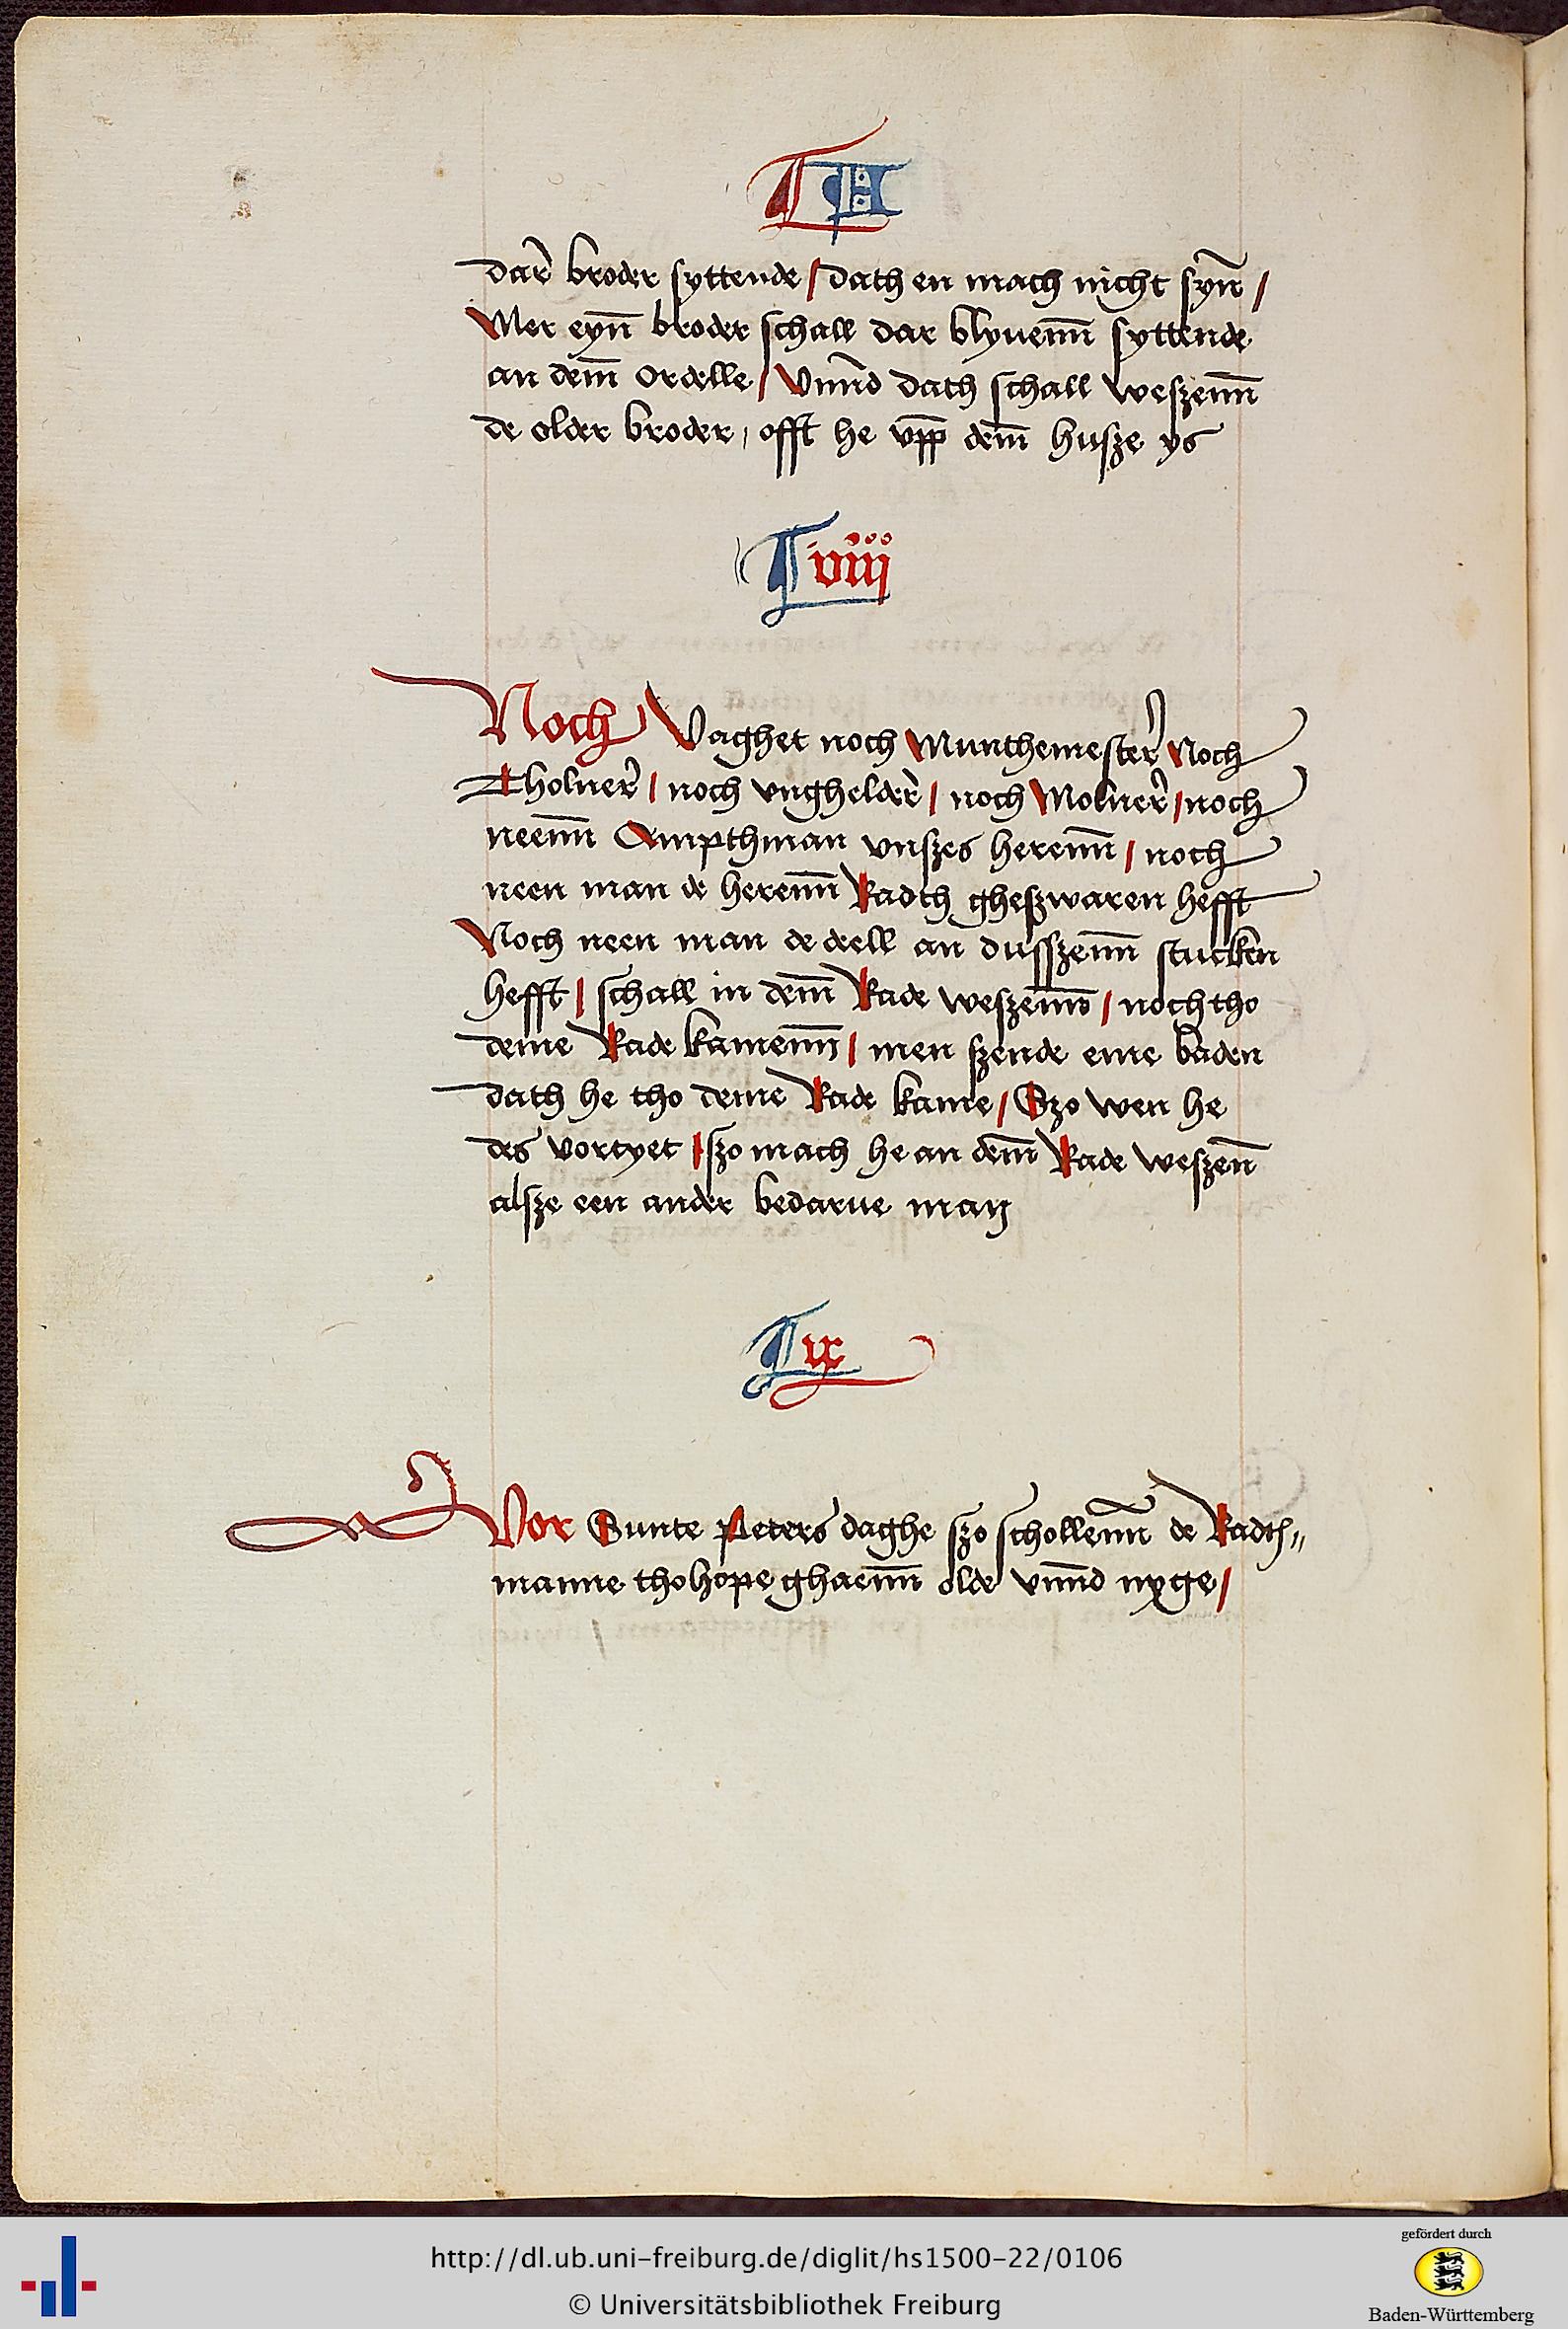 T H
dar̄ broder syttende / dath en mach nicht syn̄ /
Mer eyn̄ broder schall dar blyuenn̄ syttende
an dem̄ ordelle / Vnnd̄ dath schall weszenn̄
de older broder / offt he vpp̄ dem̄ husze ys
T viij
Noch Vaghet noch Munthemester̄ Noch
Tholner̄ / noch vnghelder̄ / noch Molner̄ / noch
neenn̄ Ampthman vnszes herenn̄ / noch
neen man de herenn̄ Radth gheszwaren hefft
Noch neen man de deell an dusszenn̄ stucken
hefft / schall in dem̄ Rade weszenn̄ / noch tho
deme Rade kamenn̄ / men szende eme baden
dath he tho deme Rade kame / Szo wen he
des vortyet / szo mach he an dem̄ Rade weszen̄
alsze een ander bedarue man
T ix
Vor Sunte Peters daghe szo schollenn̄ de Radth„
manne tho hope ghaenn̄ olde vnnd̄ nyge /
http://dl.ub.uni-freiburg.de/diglit/hs1500-22/0106
© Universitätsbibliothek Freiburg
gefördert durch
Baden-Württemberg